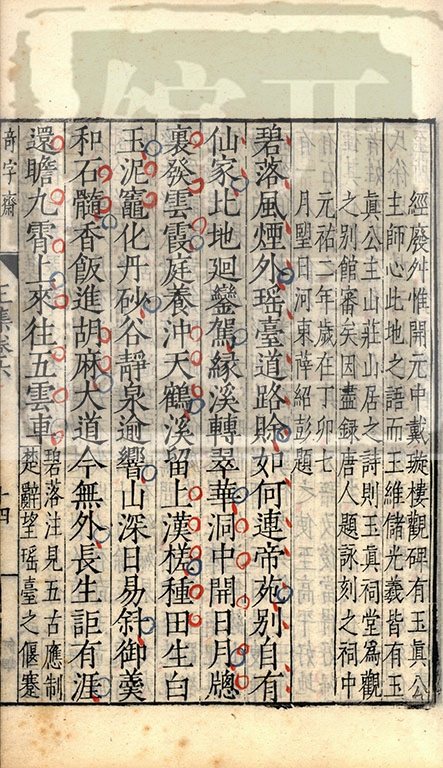 經廢舛惟開元中戴璇樓觀碑有玉眞公
主師心此地之語而王維儲光羲皆有玉
眞公主山莊山居之詩則玉眞祠堂為觀
之別館審矣因盡錄唐人題詠刻之祠中
元祐二年歲在丁卯七
月朢日河東薛紹彭題
碧落風煙外瑶臺道路賖如何連帝苑別自有
仙家此地廻鑾駕緣溪轉翠華洞中開日月牕
裏發雲霞庭養沖天鶴溪留上漢槎種田生白
玉泥竈化丹砂谷靜泉逾響山深日易斜御羹
和石髓香飯進胡麻大道今無外長生詎有涯
還瞻九霄上來往五雲車
碧落注見五古應制
楚辭望瑶臺之偃蹇
奇字齋
王集卷六
十四